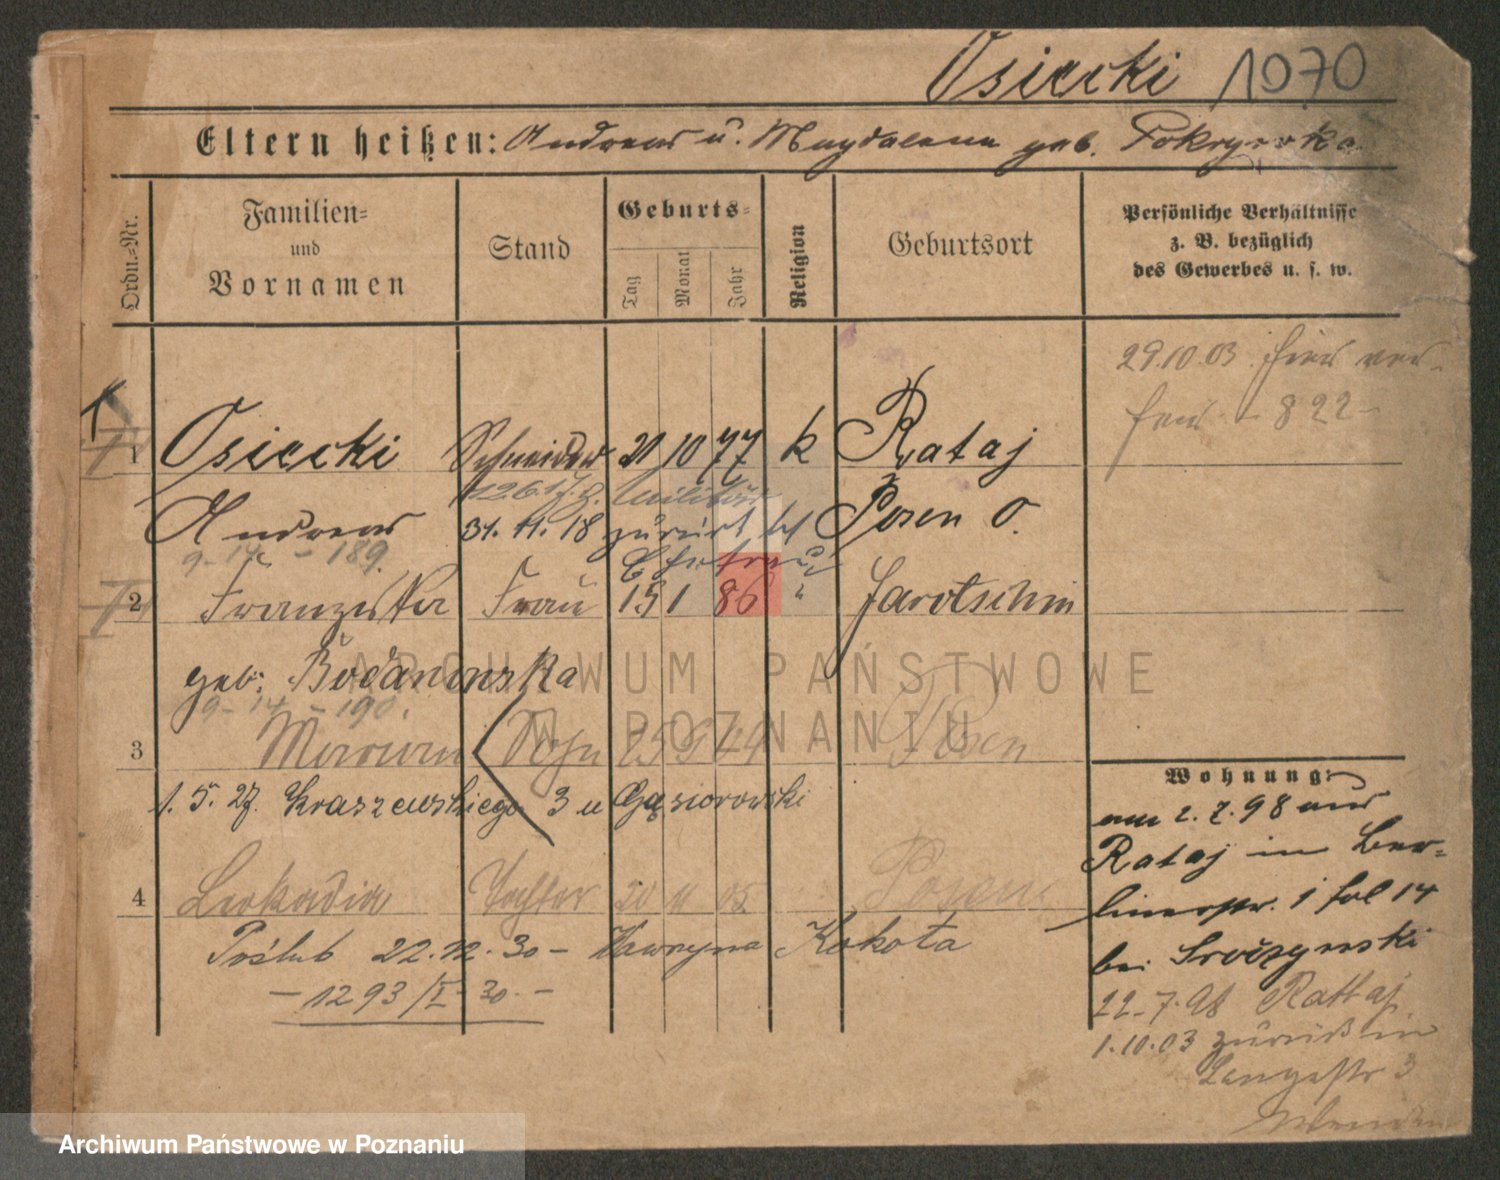 Osiecki 1970
Eltern heißen: Andreas u. Magdalena geb. Pokrywka
Ordn.=Nr.
Familien=
und
Vornamen
Stand
Geburts=
Tag
Monat
Jahr
Religion
Geburtsort
Persönliche Verhältnisse
z. B. bezüglich
des Gewerbes u. s. w.
29.10.03
822
1 Osiecki Schneider 21 10 77 k Rataj
Militär
Andreas 31. 11. 18 zurück Posen O.
9-14 - 189.
2 Franziska Frau 15 1 86 " Jarotschin
geb: Bodanowska
9-14 - 190.
3 Marian Sohn 25 Posen
1. 5. 27. Kraszewskiego 3 u Gąsiorowski
4 Leokadia Tochter 20 11 05 Posen
Poślub 22. 12. 30 - Wawrzyna Kokota
- 1293/I - 30 -
Wohnung:
am 2. 7. 98 aus
Rataj in Ber=
linerstr. 1 fol 14
bei
22-7.98 Rattaj
1.10.03 zurück in
Langestr 3
ARCHIWUM PAŃSTWOWE
W POZNANIU
Archiwum Państwowe w Poznaniu